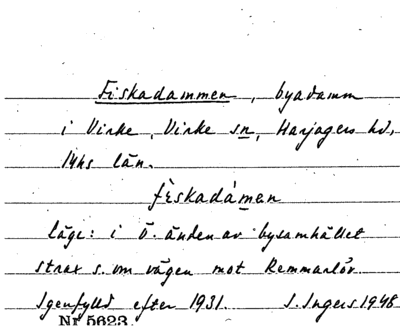 Fiskadammen, byadamm
i Virke, Virke sn, Harjagers hd,
Mhs län.
fèskadá̱men
Läge: i Ö. änden av bysamhället
strax s. om vägen mot Remmarlöv
Igenfylld efter 1931. I. Ingers 1948
Nr 5623.